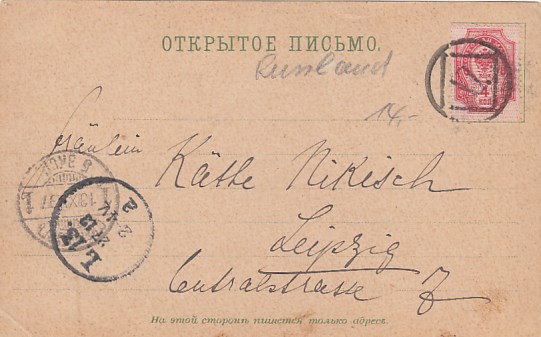 ОТКРЫТОЕ ПИСЬМО.
Russland
14,-
4
Fräulein
Käthe Nikisch
Leipzig
Centralstrasse 7
На этой сторонѣ пишется только адресъ.